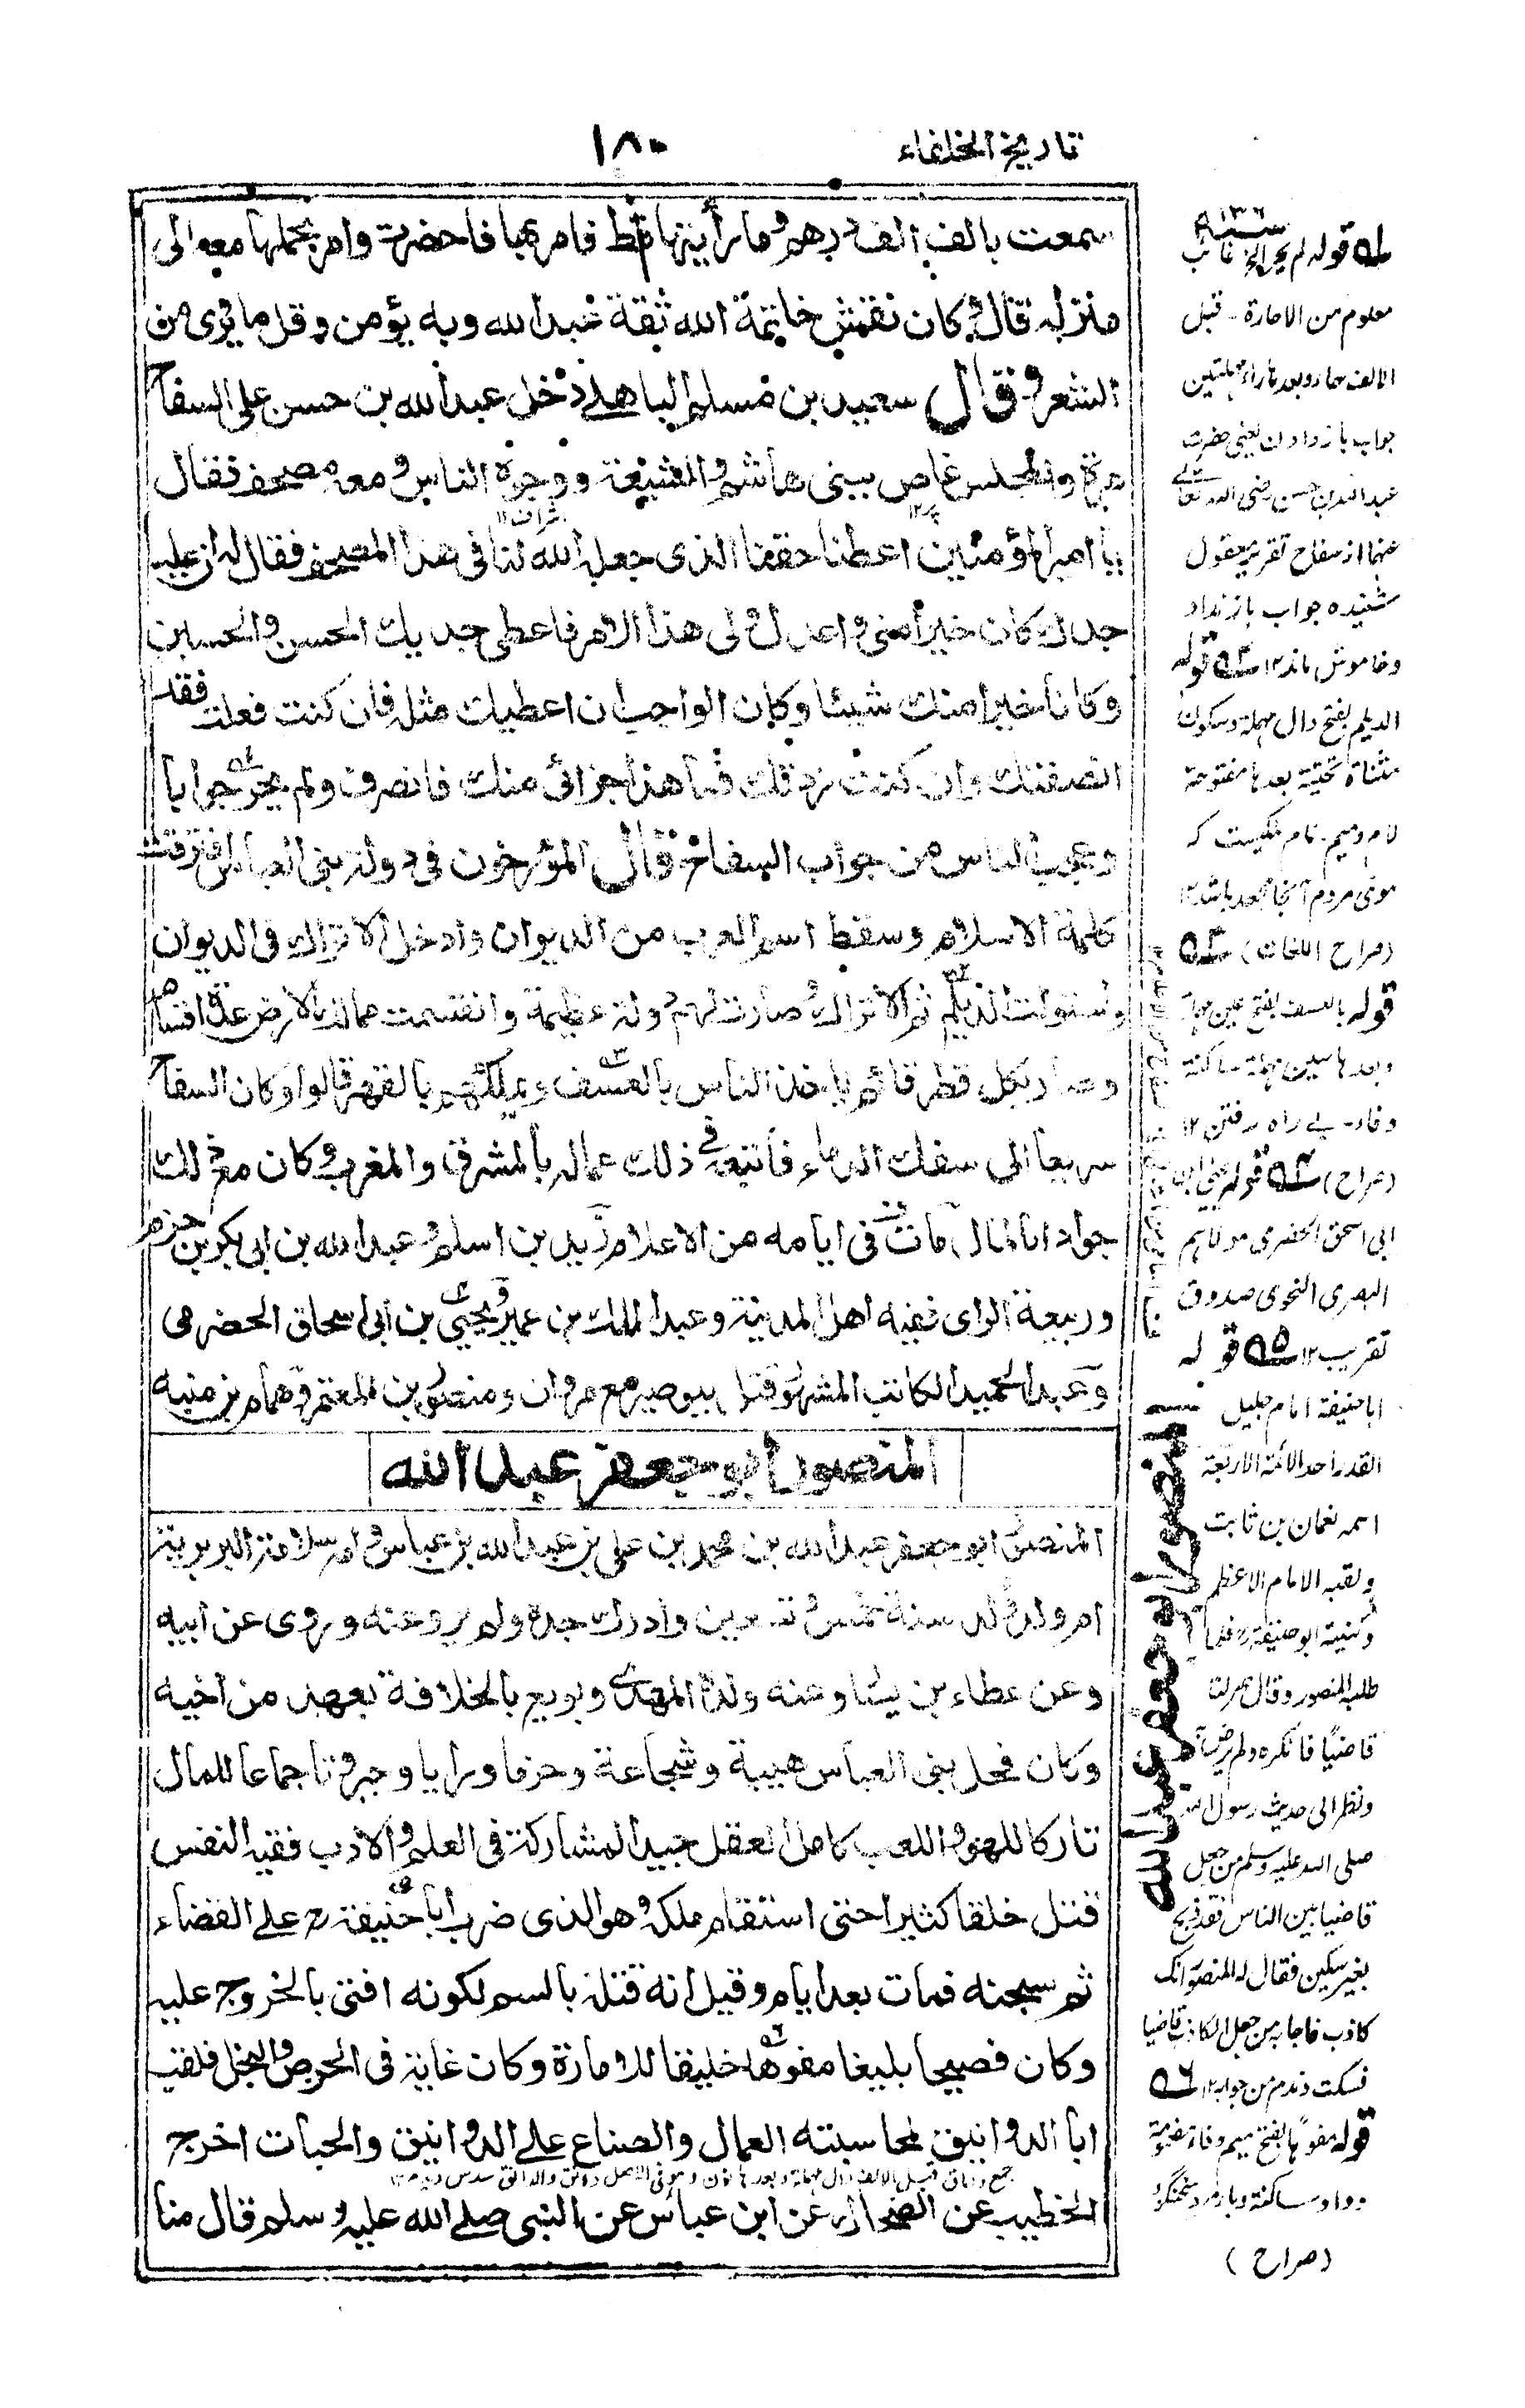 تاريخ الخلفاء
١٨٠
سمعت بالف الف درهم وما رأيتها قط فامر بها فاحضرت وامر بحملها معه الى
منزله قال وكان نقش خاتمه الله ثقة عبد الله وبه يؤمن وقل ما يروى من
الشعر وقال سعيد بن مسلم الباهلى دخل عبد الله بن حسن على السفاح
مرة والمجلس غاص ببنى هاشم والشيعة ووجوه الناس ومعه مصحف فقال
يا امير المؤمنين اعطنا حقنا الذى جعله الله لنا فى هذا المصحف فقال له ان عليا
جدك كان خيرا منى واعدل ولى هذا الامر فاعطى جديك الحسن والحسين
وكانا خيرا منك شيئا وكان الواجب ان اعطيك مثله فان كنت فعلت فقد
انصفتك وان كنت زدتك فما هذا جزائى منك فانصرف ولم يحر جوابا
وعجب الناس من جواب السفاح قال المؤرخون فى دولة بنى العباس افترقت
كلمة الاسلام وسقط اسم العرب من الديوان وادخل الاتراك فى الديوان
واستولت الديلم ثم الاتراك وصارت لهم دولة عظيمة وانقسمت ممالك الارض عدة اقسام
وصار بكل قطر قائم ياخذ الناس بالعسف ويملكهم بالقهر قالوا وكان السفاح
سريعا الى سفك الدماء فاتبعه فى ذلك عماله بالمشرق والمغرب وكان مع ذلك
جوادا بالمال مات فى ايامه من الاعلام زيد بن اسلم وعبد الله بن ابى بكر بن حزم
وربيعة الراى فقيه اهل المدينة وعبد الملك بن عمير ويحيى بن ابى اسحاق الحضرمى
وعبد الحميد الكاتب المشهور قتل ببوصير مع مروان ومنصور بن المعتمر وهمام بن منبه
المنصور ابو جعفر عبد الله
المنصور ابو جعفر عبد الله بن محمد بن على بن عبد الله بن عباس وامه سلامة البربرية
ام ولد ولد سنة خمس وتسعين وادرك جده ولم يرو عنه وروى عن ابيه
وعن عطاء بن يسار وعنه ولده المهدى وبويع بالخلافة بعهد من اخيه
وكان فحل بنى العباس هيبة وشجاعة وحزما ورايا وجبروتا جماعا للمال
تاركا للهو واللعب كامل العقل جيد المشاركة فى العلم والادب فقيه النفس
قتل خلقا كثيرا حتى استقام ملكه وهو الذى ضرب ابا حنيفة رح على القضاء
ثم سجنه فمات بعد ايام وقيل انه قتله بالسم لكونه افتى بالخروج عليه
وكان فصيحا بليغا مفوها خليقا للامارة وكان غاية فى الحرص والبخل فلقب
ابا الدوانيق لمحاسبته العمال والصناع على الدوانيق والحبات اخرج
الخطيب عن الضحاك عن ابن عباس عن النبى صلى الله عليه وسلم قال منا
قوله لم يحر الخ غائب
معلوم من الاحارة - قبل
الالف حاء وبعدها راء مهملتين
جواب باز دادن يعنى حضرت
عبد الله بن حسن رضى الله تعالى
عنهما از سفاح تقرير معقول
شنيده جواب باز نداد
وخاموش ماند ١٢ قوله
الديلم بفتح دال مهملة وسكون
مثناة تحتية بعدها مفتوحة
لام وميم - نام ملكيست كه
موى مردم آنجا مجعد باشد ١٢
(صراح اللغات)
قوله بالعسف بفتح عين مهملة
وبعدها سين مهملة ساكنة
وفاء - بے راه رفتن ١٢
(صراح) قوله يحيى بن
ابى اسحق الحضرمى مولاهم
البصرى النحوى صدوق
تقريب ١٢ قوله
ابا حنيفة امام جليل
القدر احد الائمة الاربعة
اسمه نعمان بن ثابت
ولقبه الامام الاعظم
وكنيته ابو حنيفة رح فلما
طلبه المنصور وقال صر لنا
قاضيا فانكره ولم يرض
ونظر الى حديث رسول الله
صلى الله عليه وسلم من جعل
قاضيا بين الناس فقد ذبح
بغير سكين فقال له المنصور انك
كاذب فاجابه من جعل الكاذب قاضيا
فسكت وندم من جوابه ١٢
قوله مفوها بفتح ميم وفاء مضمومة
وواو ساكنة وهاء مرد سخنگو
(صراح)
المنصور ابو جعفر عبد الله